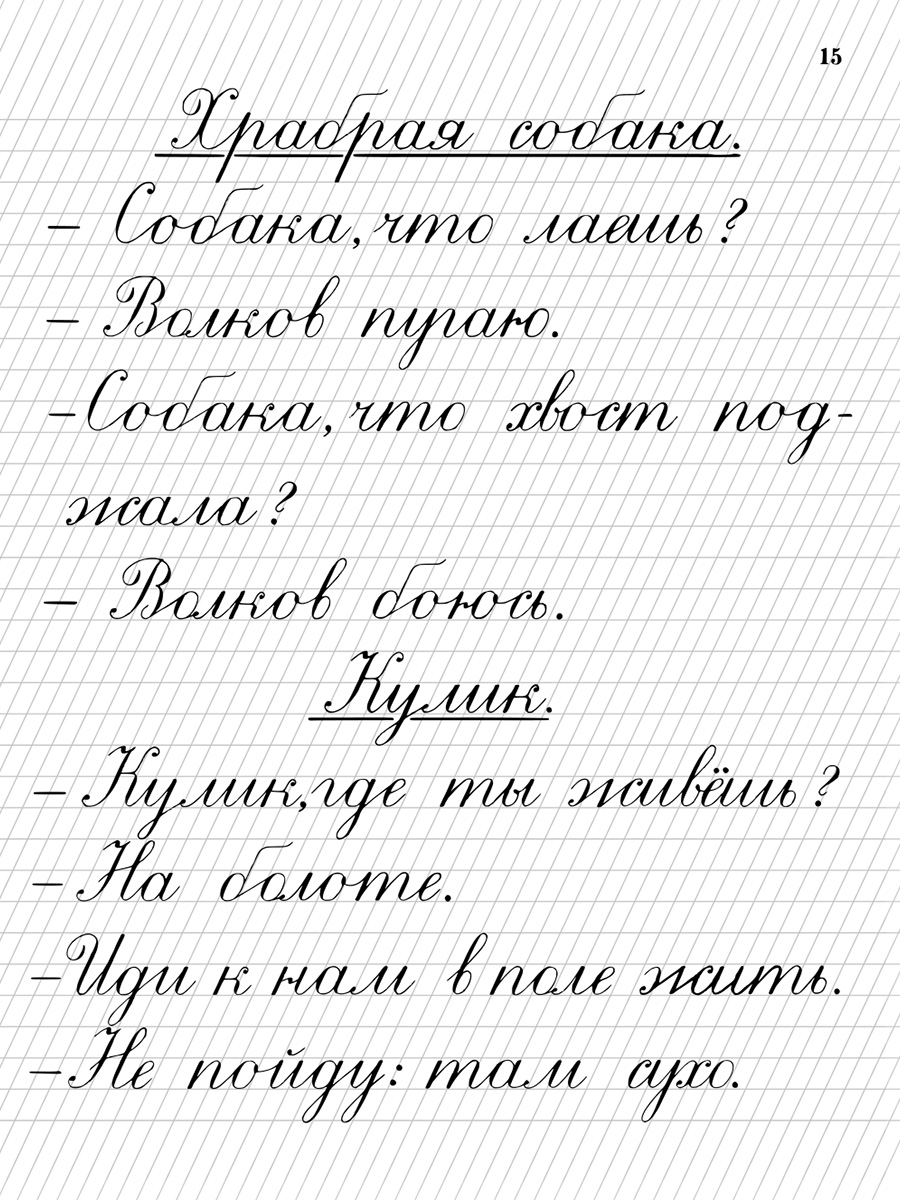 15
Храбрая собака.
– Собака, что лаешь?
– Волков пугаю.
– Собака, что хвост под-
жала?
– Волков боюсь.
Кулик.
– Кулик, где ты живёшь?
– На болоте.
– Иди к нам в поле жить.
– Не пойду: там сухо.